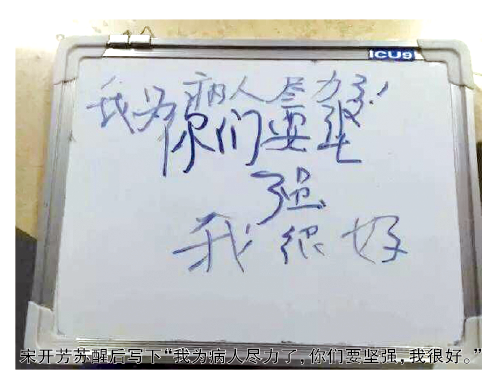 ICU9
我为病人尽力了！
你们要坚
强
我很好
宋开芳苏醒后写下“我为病人尽力了，你们要坚强，我很好。”